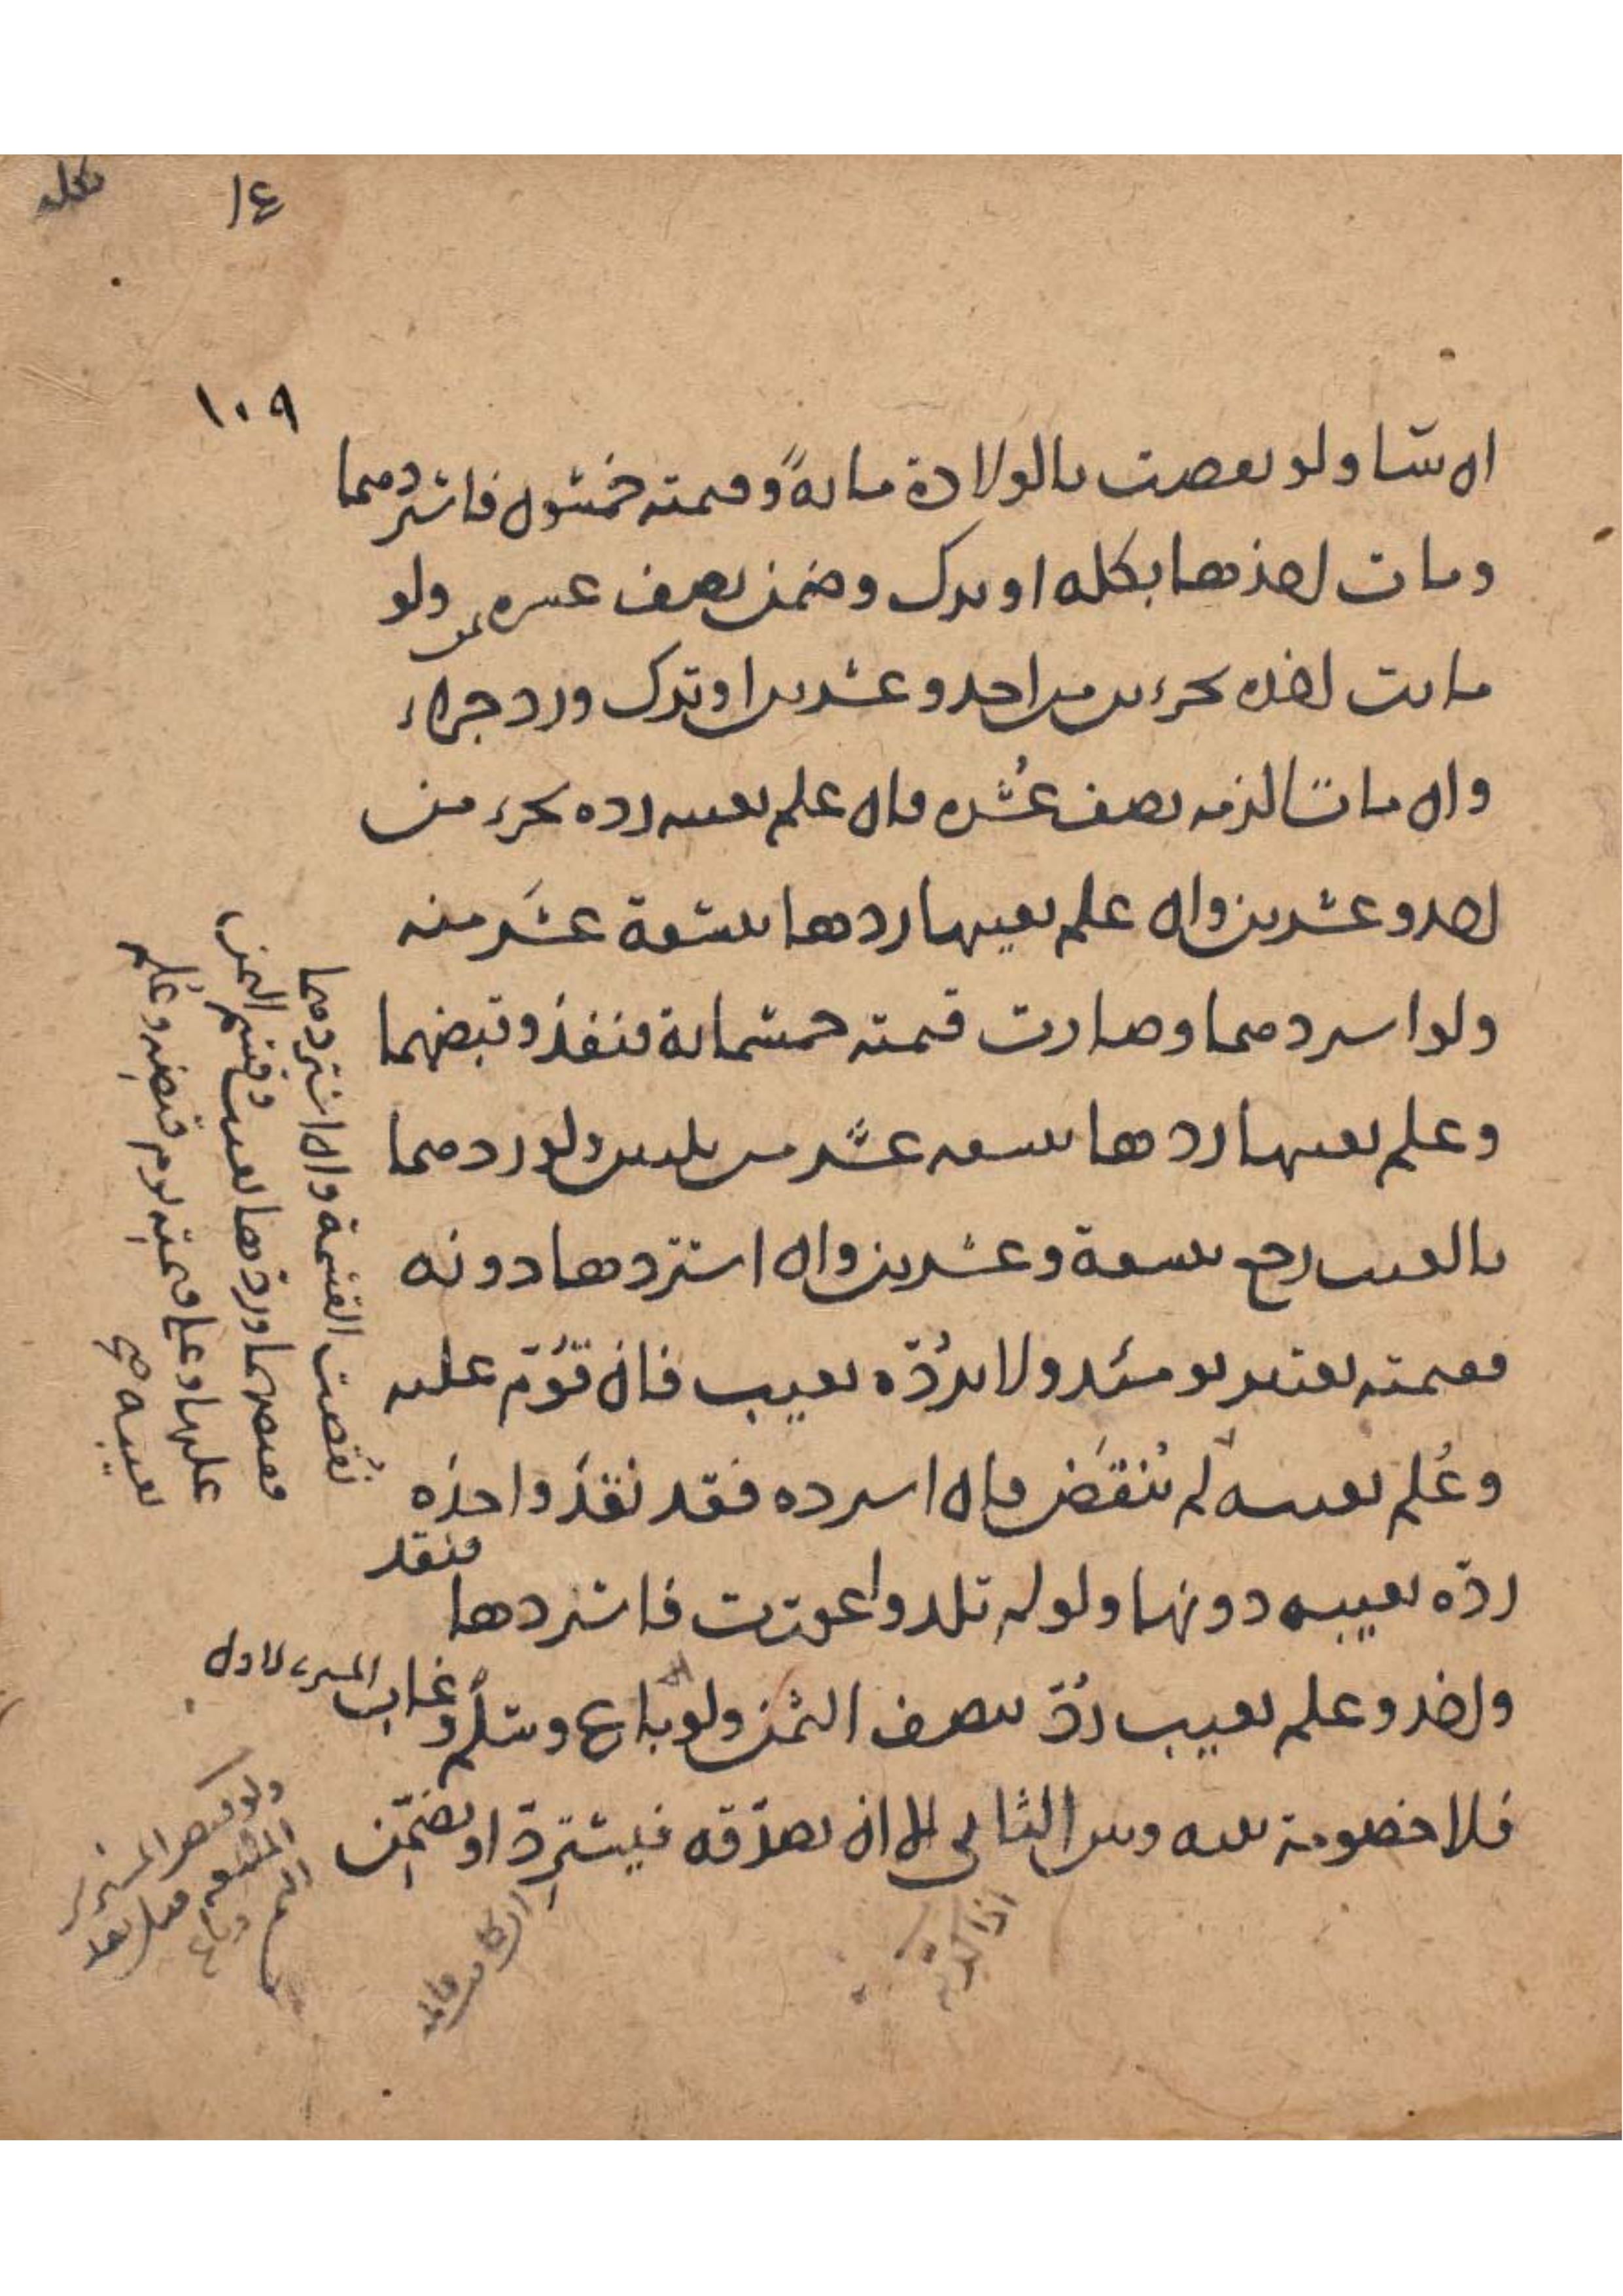 ١٠٩
ان شا ولو نقصت بالولادة مايةً وقيمته خمسون فاستردهما
ومات اخذها بكله او ترك وضمن نصف عشره ولو
ماتت اخذه بجزءين من احد وعشرين او ترك ورد جزاء
وان ماتا لزمه نصف عُشره فان علم بعيبه رده بجزء من
احد وعشرين وان علم بعيبها ردها بتسعة عشر منه
ولو استردهما وصارت قيمته خمسماية فنقد وقبضهما
وعلم بعيبها ردها بتسعه عشر من ثلثين ولو ردهما
بالعيب رجع بتسعة وعشرين وان استردها دونه
فقيمته تعتبر يومئذ ولا يردّه بعيب فان قُوّم عليه
وعُلم بعيبه لم تُنقض فان استرده فقد نقد واخذه
ردّه بعيبه دونها ولو لم تلد واعورت فاستردها فنقد
واخذ وعلم بعيب ردّ بنصف الثمن ولو باع وسلّم وغاب المشتري الاول
فلا خصومة بينه وبين الثاني الا ان يصدّقه فيستردّ او يضمّن
نقصت القسمة وان استردهما
فقبضهما وردها بعيب وقسم الثمن
عليها وعلى قيمته يوم قبضه وعُلم
بعيبه صح